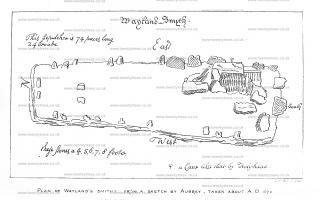 Wayland Smyth.
This sepulchre is 74 paces long
24 broade
East
N
South
West
these stones a 4, 5, 6, 7, 8 foote
a Cave
PLAN OF WAYLAND'S SMITHY, FROM A SKETCH BY AUBREY, TAKEN ABOUT A.D.
www.twentytrees.co.uk